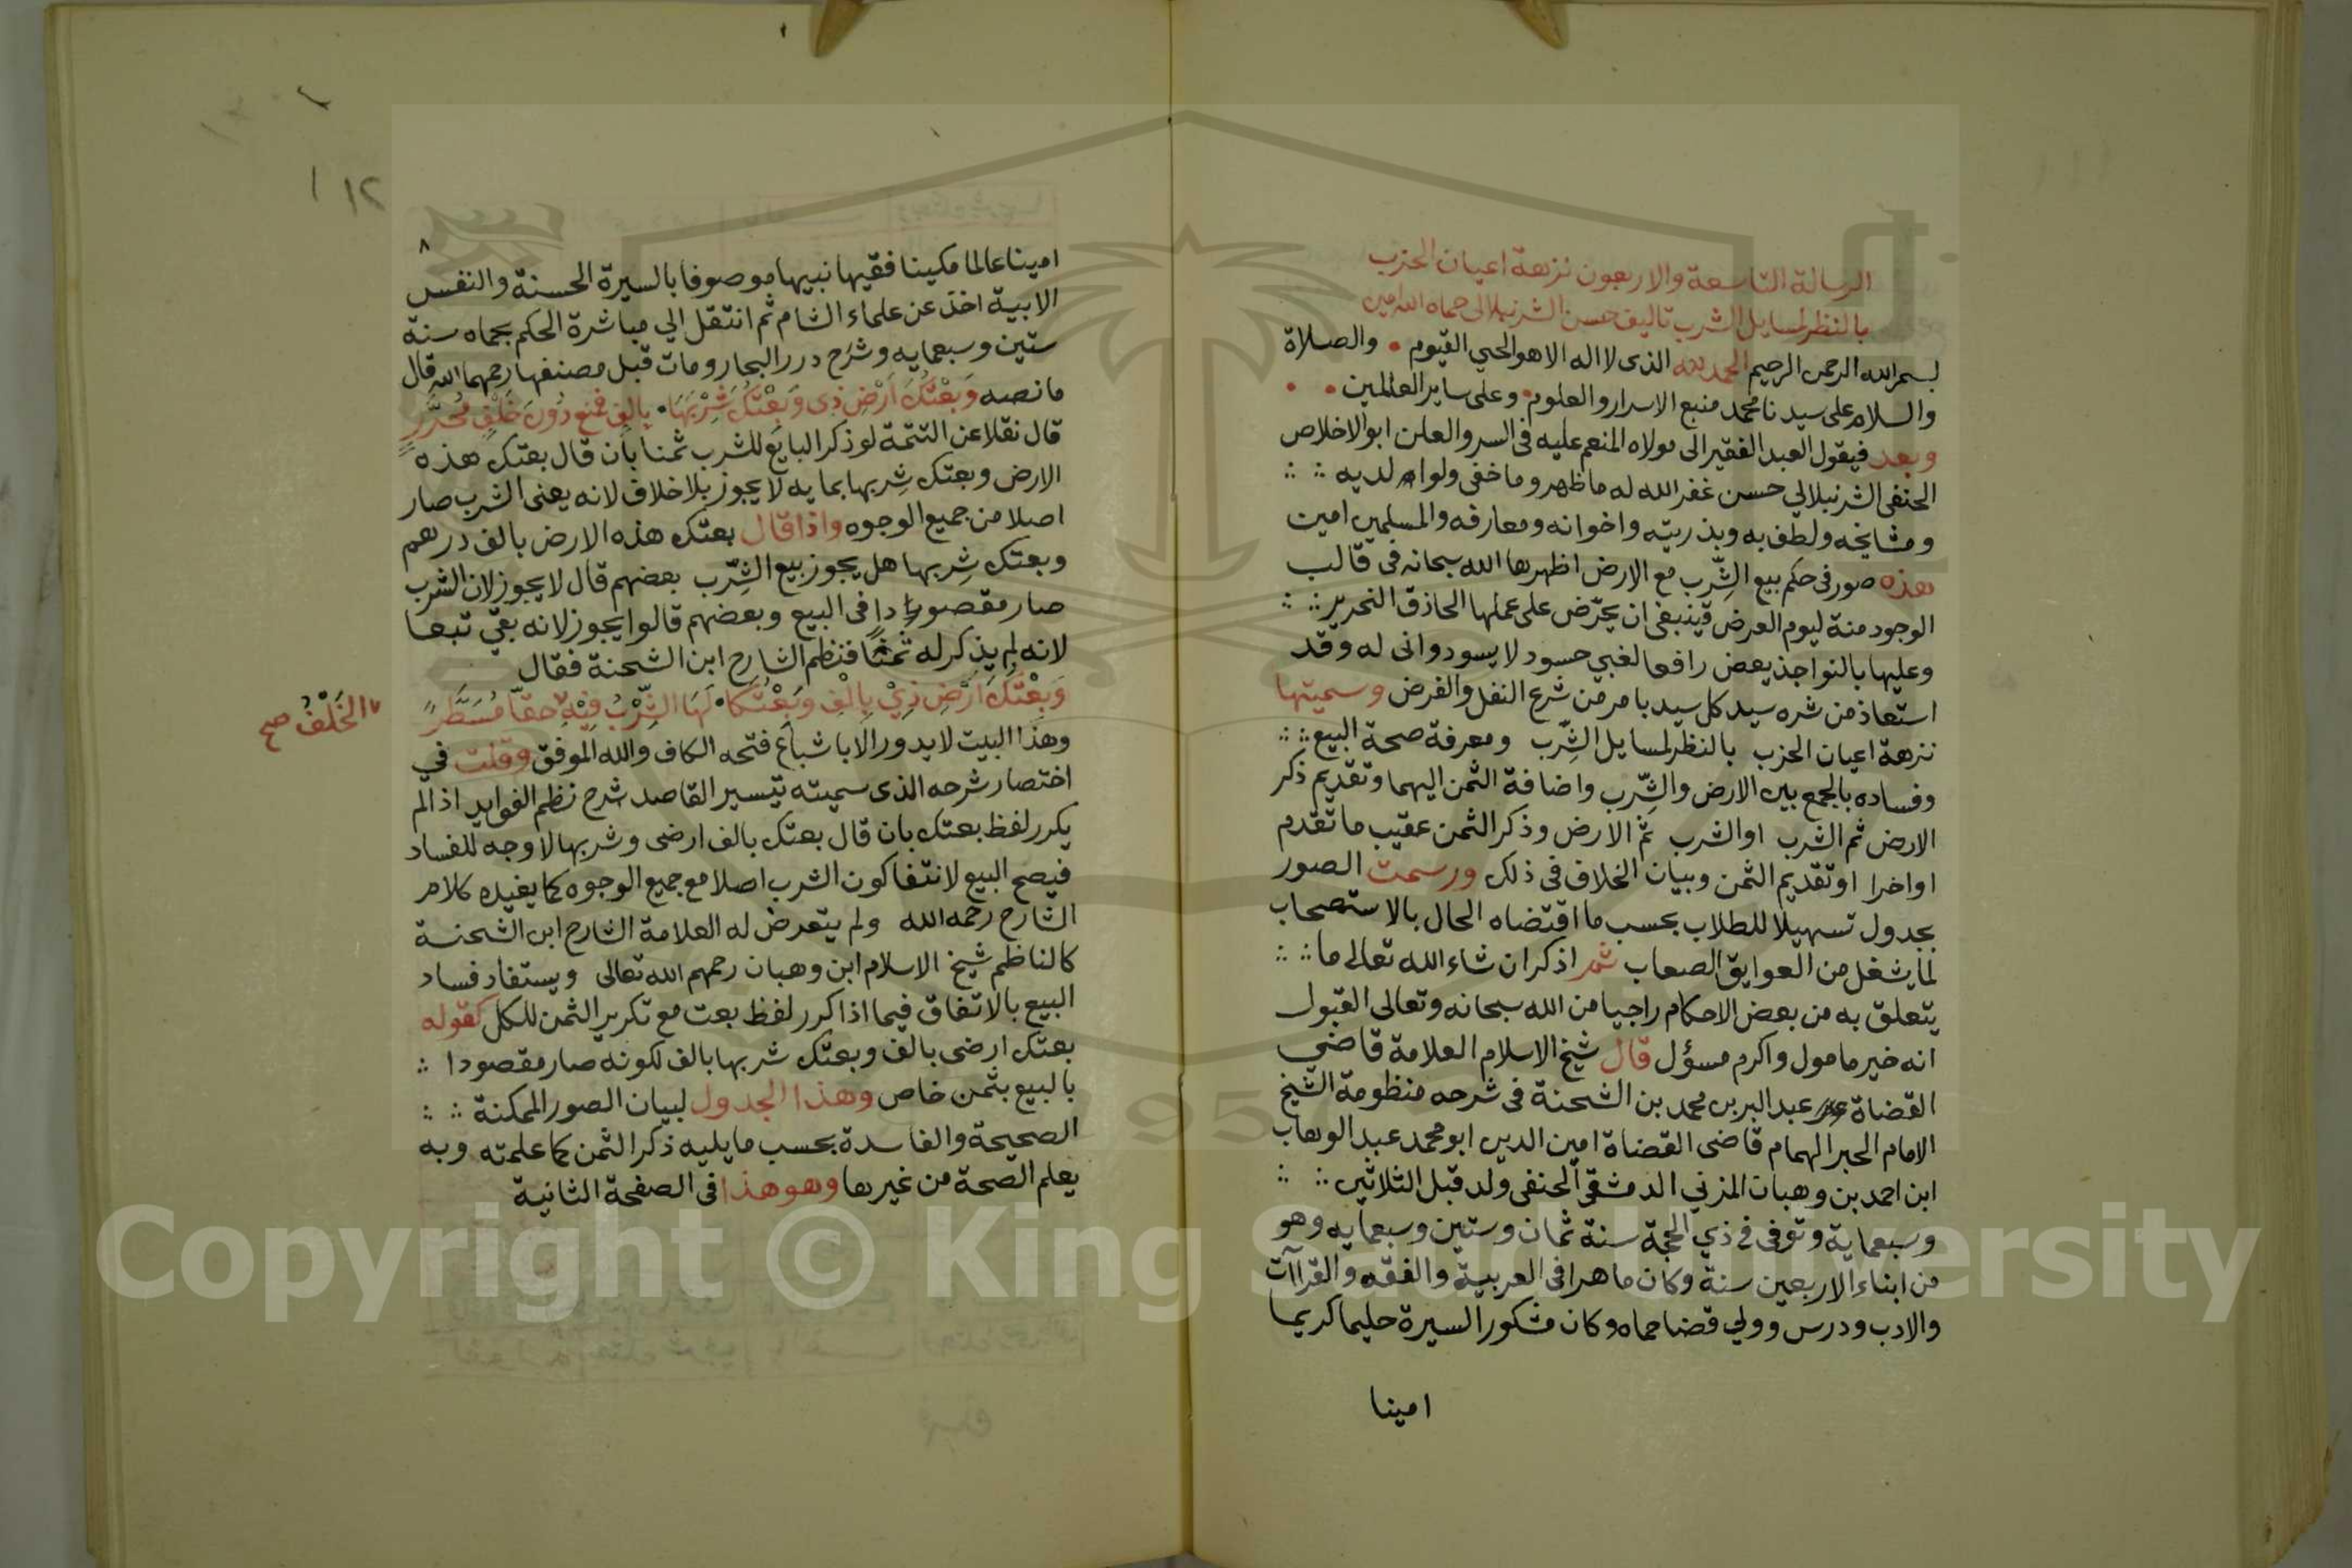 الرسالة التاسعة والاربعون نزهة اعيان الحزب
بالنظر لمسايل الشرب تاليف حسن الشرنبلالى حماه الله امين
بسم الله الرحمن الرحيم الحمد لله الذى لا اله الا هو الحي القيوم • والصلاة
والسلام على سيدنا محمد منبع الاسرار والعلوم • وعلى ساير العالمين • •
وبعد فيقول العبد الفقير الى مولاه المنعم عليه فى السر والعلن ابو الاخلاص
الحنفى الشرنبلالي حسن غفر الله له ما ظهر وما خفى ولوالديه
ومشايخه ولطف به وبذريته واخوانه ومعارفه والمسلمين امين
هذه صور فى حكم بيع الشِّرب مع الارض اظهرها الله سبحانه فى قالب
الوجود منة ليوم العرض فينبغى ان يحرّض على عملها الحاذق النحرير
وعليها بالنواجذ يعض رافعا لغبي حسود لا يسود وانى له وقد
استعاذ من شره سيد كل سيد بامر من شرع النفل والفرض وسميتها
نزهة اعيان الحزب بالنظر لمسايل الشِّرب ومعرفة صحة البيع
وفساده بالجمع بين الارض والشِّرب واضافة الثمن اليهما وتقديم ذكر
الارض ثم الشرب او الشرب ثم الارض وذكر الثمن عقيب ما تقدم
او اخرا او تقديم الثمن وبيان الخلاف فى ذلك ورسمت الصور
بجدول تسهيلا للطلاب بحسب ما اقتضاه الحال بالاستصحاب
لما يشغل من العوايق الصعاب ثم اذكر ان شاء الله تعالى ما
يتعلق به من بعض الاحكام راجيا من الله سبحانه وتعالى القبول
انه خير مامول واكرم مسؤل قال شيخ الاسلام العلامة قاضي
القضاة عبد البر بن محمد بن الشحنة فى شرحه منظومة الشيخ
الامام الحبر الهمام قاضى القضاة امين الدين ابو محمد عبد الوهاب
ابن احمد بن وهبان المزني الدمشقى الحنفى ولد قبل الثلاثين
وسبعماية وتوفى في ذي الحجة سنة ثمان وستين وسبعمايه وهو
من ابناء الاربعين سنة وكان ماهرا فى العربية والفقه والقراآت
والادب ودرس وولي قضا حماه وكان مشكور السيرة حليما كريما
امينا
١١٢
٨
امينا عالما مكينا فقيها نبيها موصوفا بالسيرة الحسنة والنفس
الابية اخذ عن علماء الشام ثم انتقل الي مباشرة الحكم بحماه سنة
ستين وسبعمايه وشرح درر البحار ومات قبل مصنفها رحمهما الله قال
ما نصه وَبِعْتُكَ اَرْضِ ذِى وَبِعْتُكَ شِرْبَهَا • بالف فمنع دُونَ خَلْفٍ مُحَرَّرٍ
قال نقلا عن التتمة لو ذكر البايع للشرب ثمنا بان قال بعتك هذه
الارض وبعتك شِربها بمايه لا يجوز بلا خلاف لانه يعنى الشرب صار
اصلا من جميع الوجوه واذا قال بعتك هذه الارض بالف درهم
وبعتك شِربها هل يجوز بيع الشِّرب بعضهم قال لا يجوز لان الشرب
صار مقصودا فى البيع وبعضهم قالوا يجوز لانه بقي تبعا
لانه لم يذكر له ثمنا فنظم الشارح ابن الشحنة فقال
وَبِعْتُكَ اَرْضِ ذِيْ بِالْفِ وَبِعْتُكَا • لَهَا الشِّرْبُ فِيْهِ حقا مُسَطَّر
الخَلْفُ صح
وهذا البيت لا يدور الا باشباع فتحه الكاف والله الموفق وقلت في
اختصار شرحه الذى سميته تيسير القاصد شرح نظم الفوايد اذا لم
يكرر لفظ بعتك بان قال بعتك بالف ارضى وشربها لا وجه للفساد
فيصح البيع لانتفا كون الشرب اصلا مع جميع الوجوه كما يفيده كلام
الشارح رحمه الله ولم يتعرض له العلامة الشارح ابن الشحنة
كالناظم شيخ الاسلام ابن وهبان رحمهم الله تعالى ويستفاد فساد
البيع بالاتفاق فيما اذا كرر لفظ بعت مع تكرير الثمن للكل كقوله
بعتك ارضى بالف وبعتك شربها بالف لكونه صار مقصودا
بالبيع بثمن خاص وهذا الجدول لبيان الصور الممكنة
الصحيحة والفاسدة بحسب ما يليه ذكر الثمن كما علمته وبه
يعلم الصحة من غيرها وهو هذا فى الصفحة الثانية
Copyright © King Saud University
1957